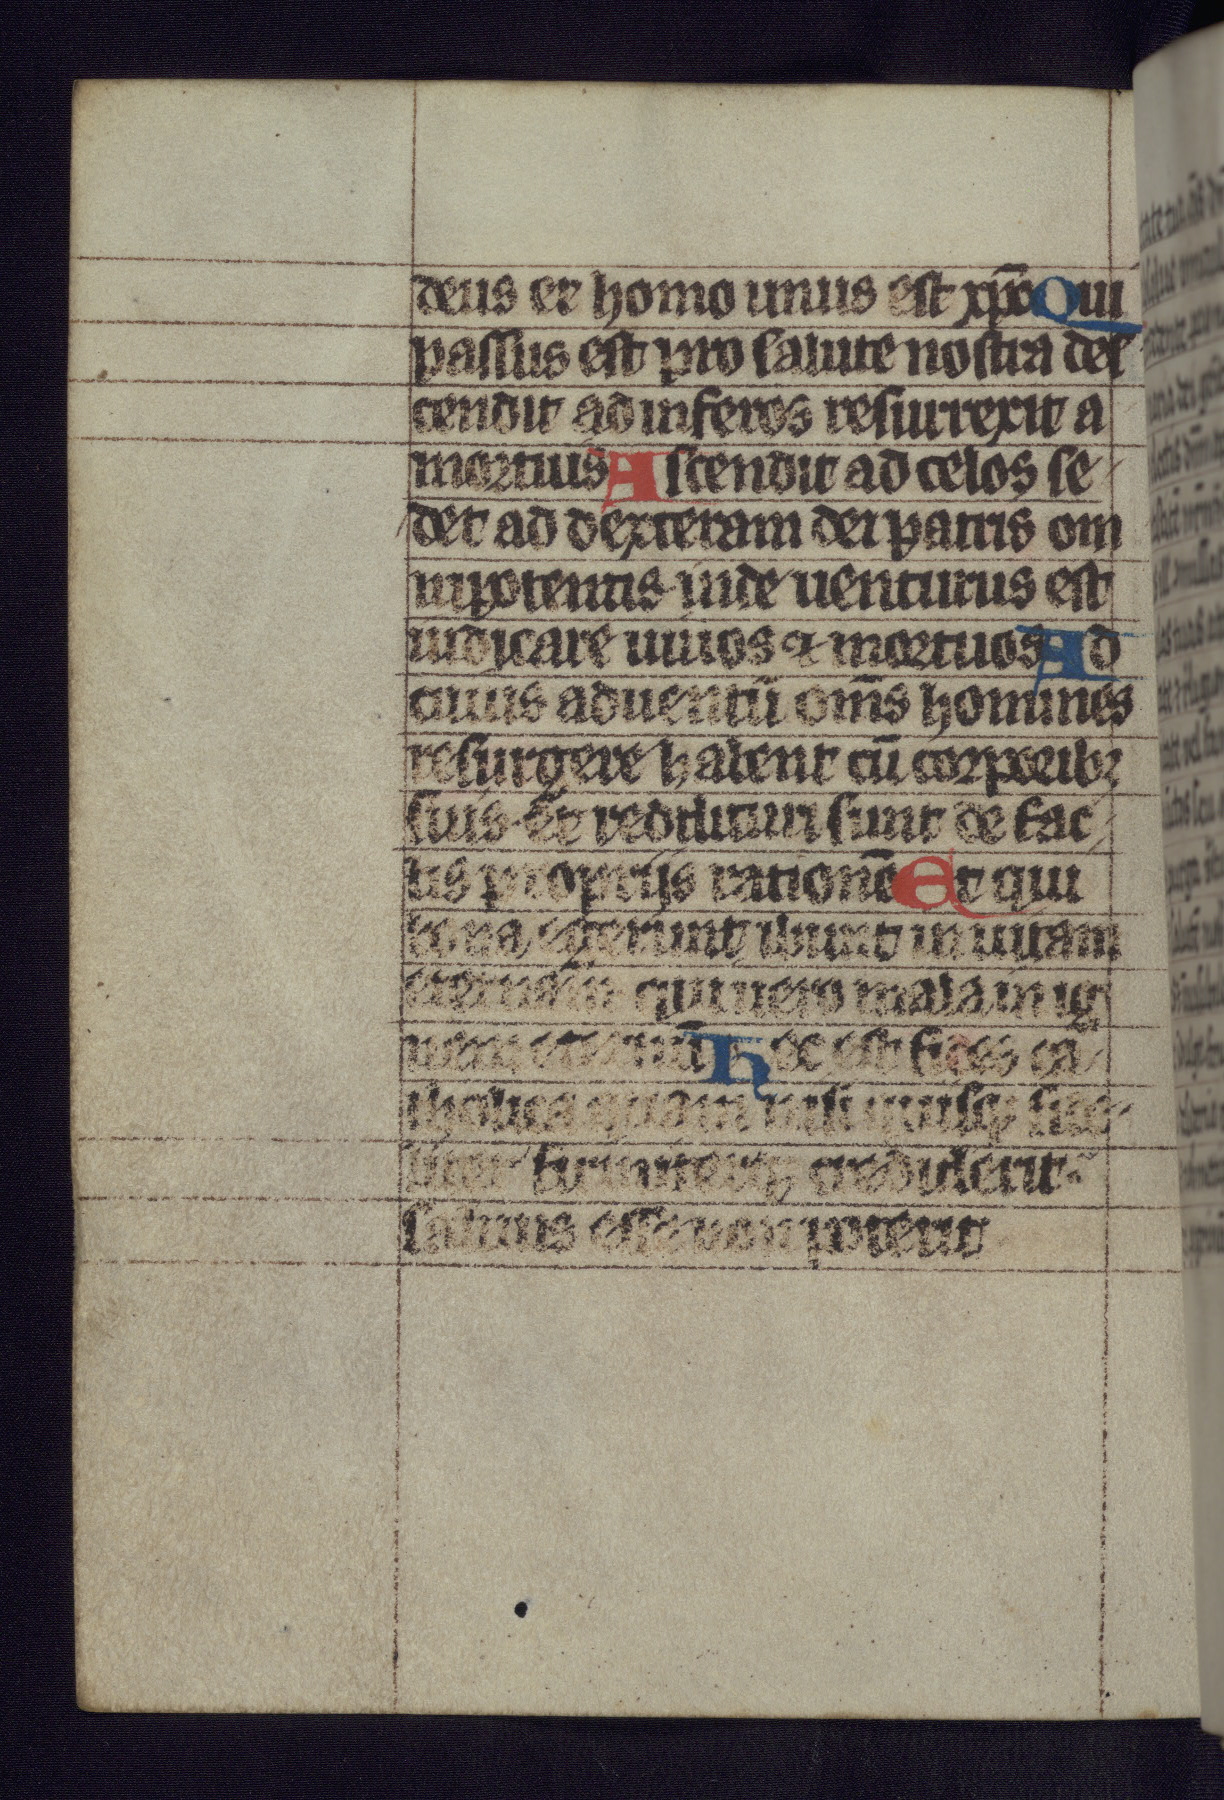 deus et homo unus est xp̄c Qui
passus est pro salute nostra des
cendit ad inferos resurrexit a
mortuis Ascendit ad celos se
det ad dexteram dei patris om
nipotentis inde uenturus est
iudicare uiuos ⁊ mortuos Ad
cuius aduentū om̄s homines
resurgere habent cū corporibꝫ
suis Et reddituri sunt de fac
tis proprijs rationē Et qui
bona egerunt ibunt in uitam
eternam qui uero mala in ig
nem eternū Hec est fides ca
tholica quam nisi quisqꝫ fide
liter firmiterqꝫ crediderit
saluus esse non poterit